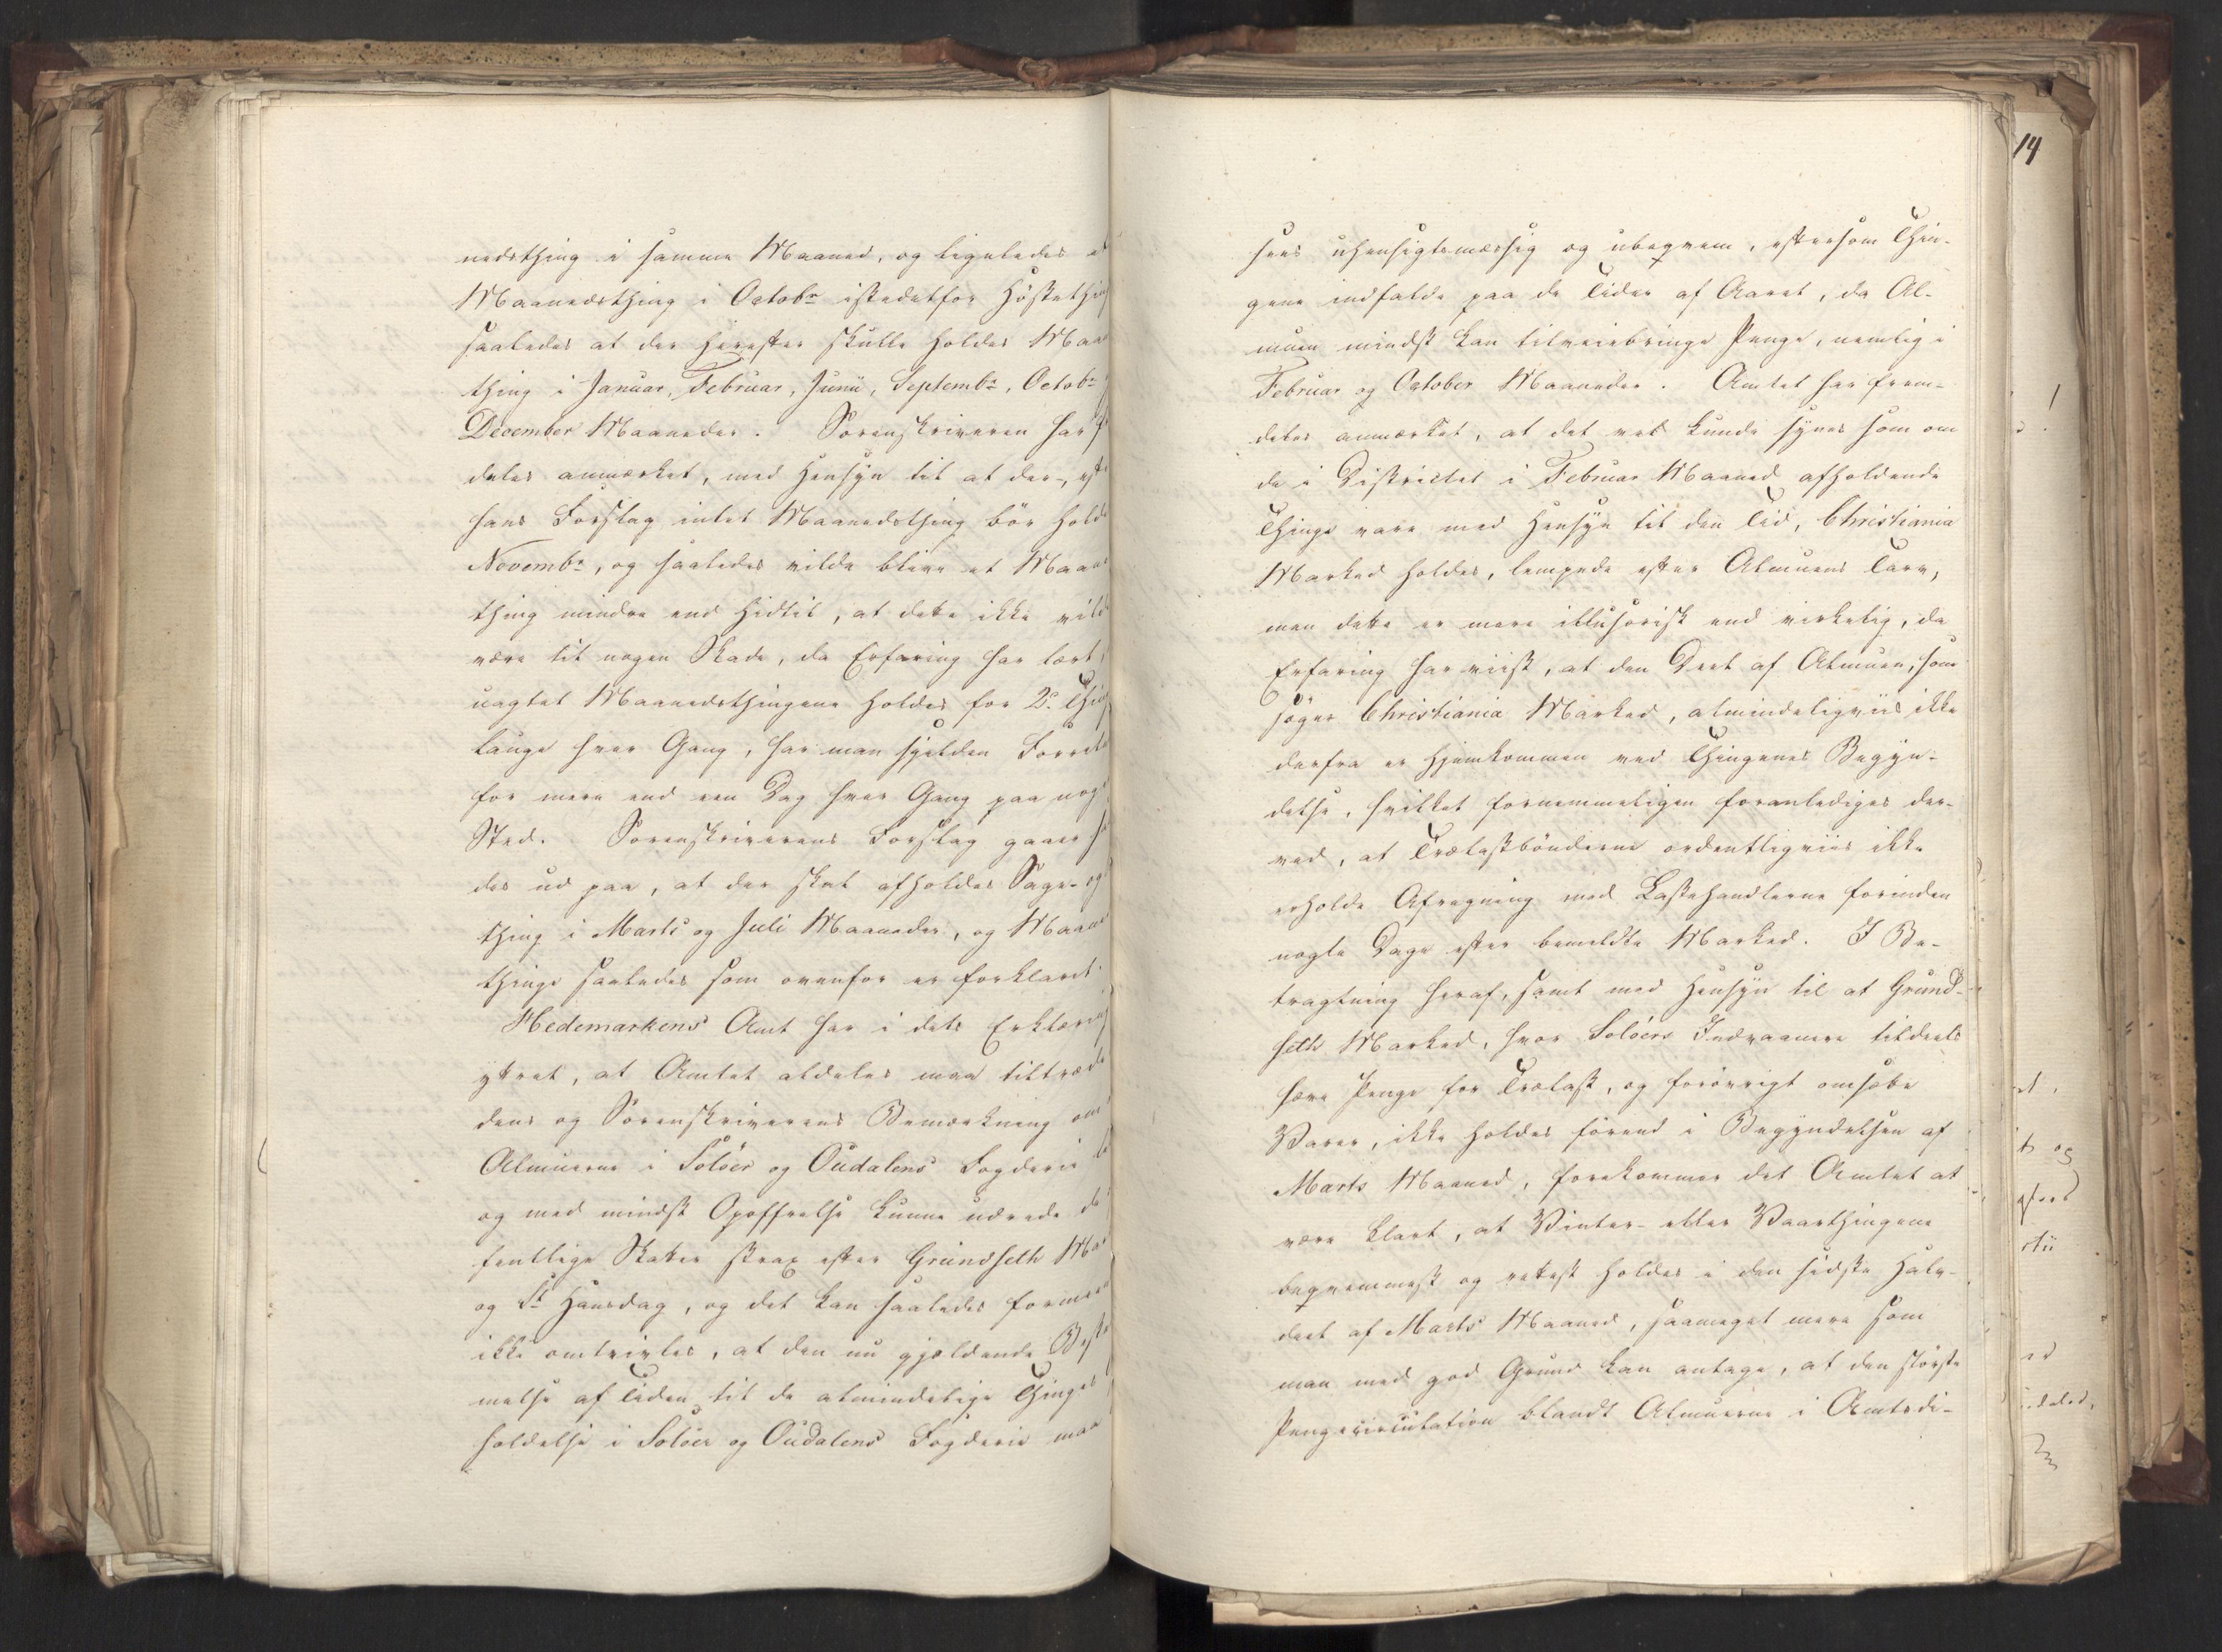 nedsthing i samme Maaned, og ligeledes et
Maanedsthing i Octobr istedetfor Høstething
saaledes at der herefter skulle holdes Maa
thing i Januar, Februar, Junii, Septembr, Octobr
December Maaneder. Sorenskriveren har
deles anmærket, med Hensyn til at der, eft
hans Forslag intet Maanedsthing bør holde
Novembr, og saaledes vilde blive et Maan
thing mindre end hidtil, at dette ikke vild
være til nogen Skade, da Erfaring har lært,
uagtet Maanedsthingene holdes for 2de Thing
lauge hver Gang, har man sjelden Forret
for mere end een Dag hver Gang paa noge
Sted. Sorenskriverens Forslag gaaer
des ud paa, at der skal afholdes Sage- og
thing i Marts og Juli Maaneder, og Maane
thinge saaledes som ovenfor er forklaret.
Hedemarkens Amt har i dets Erklæring
yttret, at Amtet aldeles maa tiltræde
dens og Sorenskriverens Bemærkning om
Almuerne i Soløer og Oudalens Fogderie
og med mindst Opoffrelse kunne udrede de
fentlige Skatter strax efter Grundseth Ma
og St Hansdag, og det kan saaledes formeen
ikke omtvivles, at den nu gjældende Beste
melse af Tiden til de almindelige Thinges
holdelse i Soløer og Oudalens Fogderie maa
14
sees uhensigtsmæssig og ubeqvem, eftersom Thin-
gene indfalde paa de Tider af Aaret, da Al-
muen mindst kan tilveiebringe Penge, nemlig i
Februar og October Maaneder. Amtet har frem-
deles anmærket, at det vel kunde synes som om
de i Districtet i Februar Maaned afholdende
Thinge vare med Hensyn til den Tid, Christiania
Marked holdes, lempede efter Almuens Tarv,
men dette er mere illusorisk end virkelig, da
Erfaring har viist, at den Deel af Almuen, som
søger Christiania Marked, almindeligviis ikke
derfra er hjemkommen ved Thingenes Begyn-
delse, hvilket fornemmeligen foranlediges der-
ved, at Trælastbønderne ordentligviis ikke
erholde Afregning med Lastehandlerne forinden
nogle Dage efter bemeldte Marked. I Be-
tragtning heraf, samt med Hensyn til at Grund-
seth Marked, hvor Soløers Indvaanere tildeels
hæve Penge for Trælast, og forøvrigt omsætte
Varer, ikke holdes førend i Begyndelsen af
Marts Maaned, forekommer det Amtet at
være klart, at Vinter- eller Vaarthingene
beqvemmest og rettest holdes i den sidste Halv-
deel af Marts Maaned, saameget mere som
man med god Grund kan antage, at den største
Pengecirculation blandt Almuerne i Amtsdi-